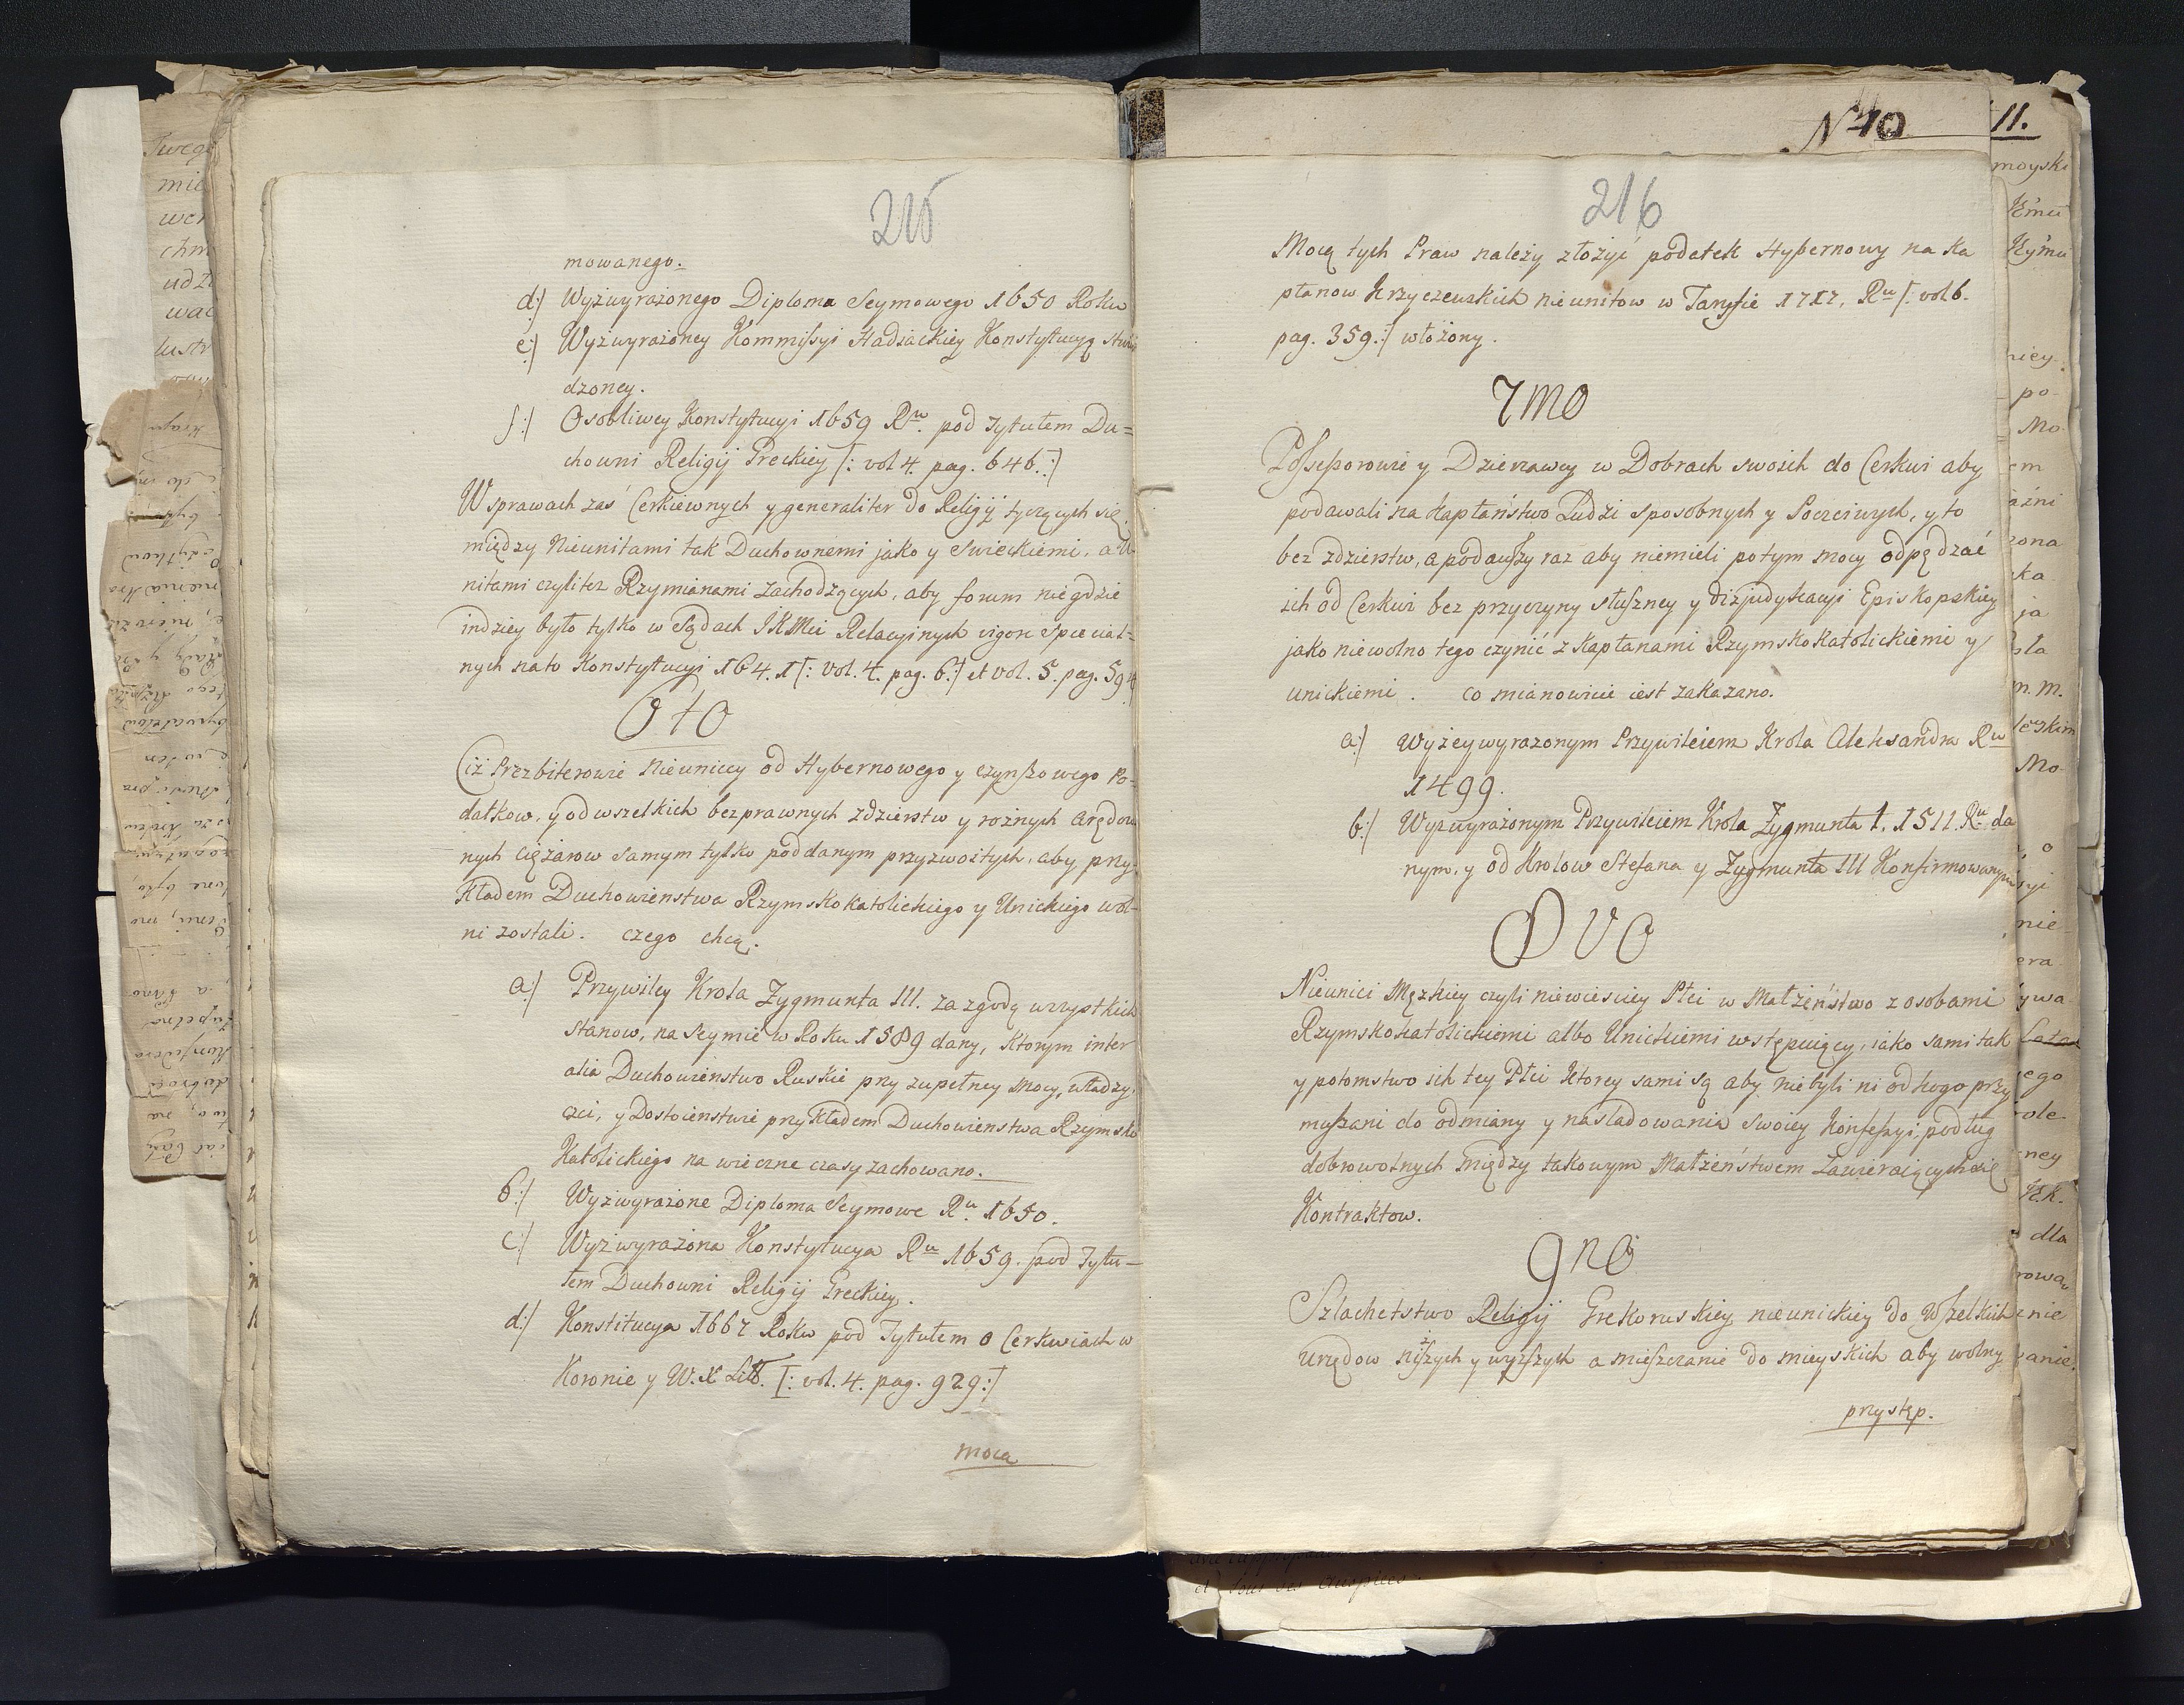 215
mowanego.
d:/ Wyżwyrażonego Diploma Seymowego 1650 Roku
e:/ Wyżwyrażoney Kommissyi Hadziackiey Konstytucyą stwier
dzoney.
f:/ Osobliwey Konstytucyi 1659 Ru. pod Tytułem Du=
chowni Religij Greckiey [: vol 4. pag. 646.:]
W sprawach zaś Cerkiewnych y generaliter do Religij tyczących się,
między Nieunitami tak Duchownemi jako y Swieckiemi, a U
nitami czyliteż Rzymianami zachodzących, aby forum niegdzie
indziey było tylko w Sądach JKMci Relacyinych vigore special=
nych na to Konstytucyi 1641 [: vol. 4. pag. 6:] et vol. 5. pag. 59
6to
Ciż Prezbiterowie Nieuniccy od Hybernowego y czynszowego Po-
datkow, y od wszelkich bezprawnych zdzierstw y rożnych arędow
nych ciężarow samym tylko poddanym przyzwoitych, aby przy
kładem Duchowienstwa Rzymskokatolickiego y Unickiego wol-
ni zostali. czego chcą.
a:/ Przywiley Krola Zygmunta III. za zgodą wszystkich
stanow, na Seymie w Roku 1589 dany, ktorym inter
alia Duchowieństwo Ruskie przy zupełney mocy, władzy,
czci, y Dostoieństwie przykładem Duchowienstwa Rzymsko
Katolickiego na wieczne czasy zachowano.
b:/ Wyżwyrażone Diploma Seymowe Ru. 1650.
c:/ Wyżwyrażona Konstytucya Ru 1659. pod Tytu-
łem Duchowni Religij Greckiey.
d:/ Konstitucya 1667 Roku pod Tytułem o Cerkwiach w
Koronie y W. X Litt. [: vol. 4. pag. 929:]
moca
N 10
11.
216
Mocą tych Praw należy złożyć podatek Hybernowy na Ka
płanow Krzyczewskich nieunitow w Taryfie 1717. Ru [: vol 6.
pag. 359.:] włożony.
7mo
Possessorowie y Dzierzawcy w Dobrach swoich do Cerkwi aby
podawali na kapłaństwo Ludzi sposobnych y Poczciwych, y to
bez zdzierstw, a podawszy raz aby niemieli potym mocy odpędzać
ich od Cerkwi bez przyczyny słuszney y dizjudykacyi Episkopskiey
jako niewolno tego czynić z Kapłanami Rzymskokatolickiemi y
unickiemi. co mianowicie iest zakazano.
a:/ Wyżeywyrażonym Przywileiem Krola Aleksandra Ru
1499.
b:/ Wyżwyrażonym Przywileiem Krola Zygmunta 1. 1511. Ru da
nym, y od Krolow Stefana y Zygmunta III Konfirmowanym
8vo
Nieunici Męzkiey czyli niewiesciey Płci w Małżeństwo z osobami
Rzymskokatolickiemi albo Unickiemi wstępuiący, iako sami tak
y potomstwo ich tey Płci ktorey sami są aby niebyli ni od kogo przy
muszani do odmiany y nasladowania swoiey Konfessyi, podług
dobrowolnych między takowym Małżeństwem zawieraiących się
Kontraktow.
9no
Szlachetstwo Religij Grekoruskiey nieunickiey do Wszelkich
urzędow niższych y wyższych a mieszczanie do mieyskich aby wolny
przystęp.